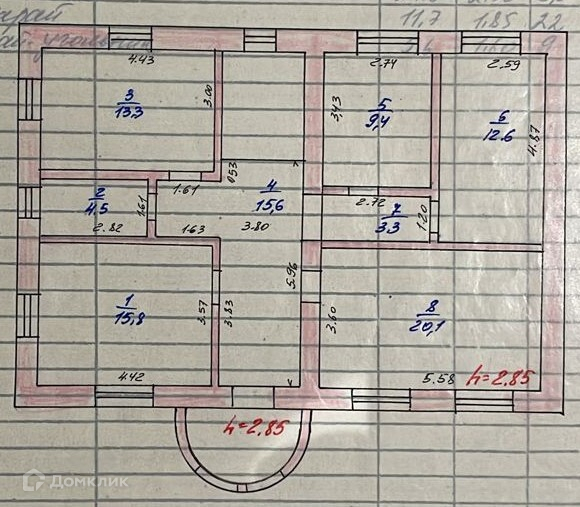 сарай
11,7 1.85 22
4.43
3
13.3
3.00
2.74
3,43
5
9,4
2.59
6
12.6
4.87
0.53
2
4.5
1.61
1.61
4
15,6
2.72
7
3.3
1.20
2.82
1.63
3.80
1
15,8
3.57
3.83
5.96
3.60
8
20,1
4.42
5.58
h=2.85
h=2.85
Домклик